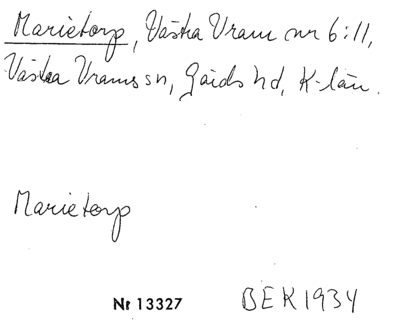 Marietorp, Västra Vram nr 6:11,
Västra Vrams sn, Gärds hd, K-län.
Marietorp
Nr 13327 BEK 1934